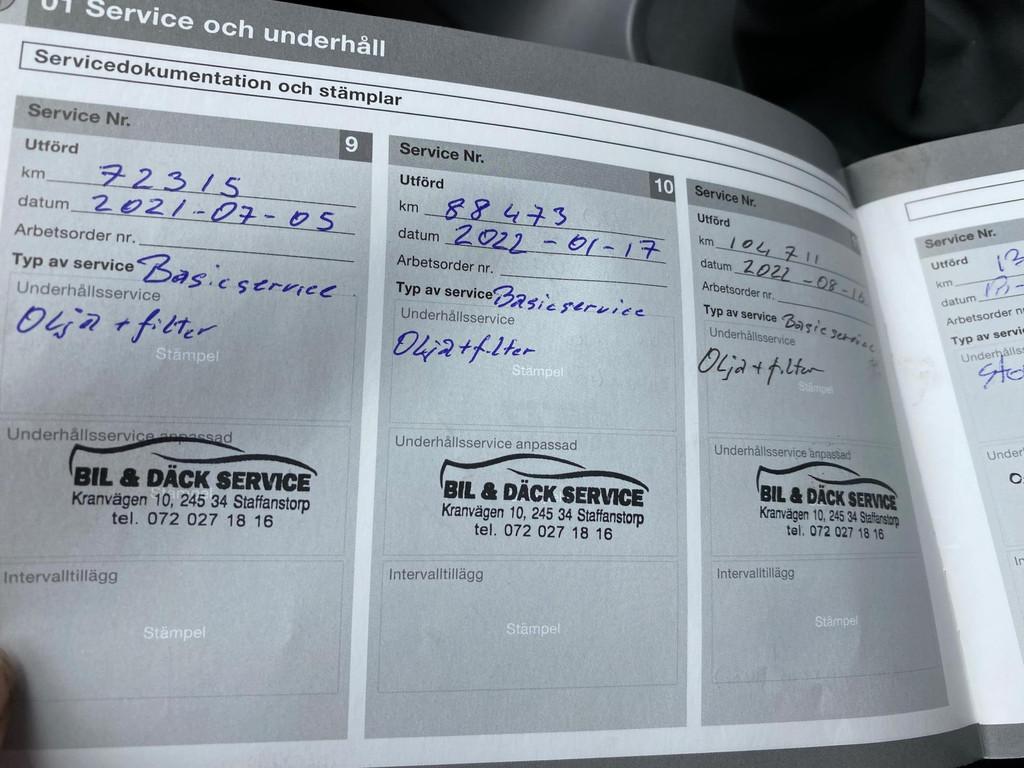 01 Service och underhåll
Servicedokumentation och stämplar
Service Nr. 9
Utförd
km 72315
datum 2021-07-05
Arbetsorder nr.
Typ av service Basic service
Underhållsservice
Olja + filter
Stämpel
Underhållsservice anpassad
BIL & DÄCK SERVICE
Kranvägen 10, 245 34 Staffanstorp
tel. 072 027 18 16
Intervalltillägg
Stämpel
Service Nr. 10
Utförd
km 88473
datum 2022-01-17
Arbetsorder nr.
Typ av service Basicservice
Underhållsservice
Olja + filter
Stämpel
Underhållsservice anpassad
BIL & DÄCK SERVICE
Kranvägen 10, 245 34 Staffanstorp
tel. 072 027 18 16
Intervalltillägg
Stämpel
Service Nr.
Utförd
km 104711
datum 2022-08-16
Arbetsorder nr.
Typ av service Basic service
Underhållsservice
Olja + filter
Stämpel
Underhållsservice anpassad
BIL & DÄCK SERVICE
Kranvägen 10, 245 34 Staffanstorp
tel. 072 027 18 16
Intervalltillägg
Stämpel
Service Nr.
Utförd
km
datum
Arbetsorder
Typ av